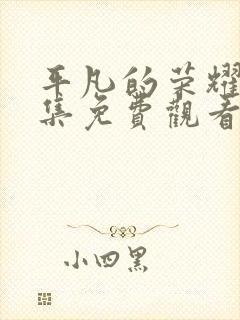 平凡的荣耀
集免費觀看
小四黑